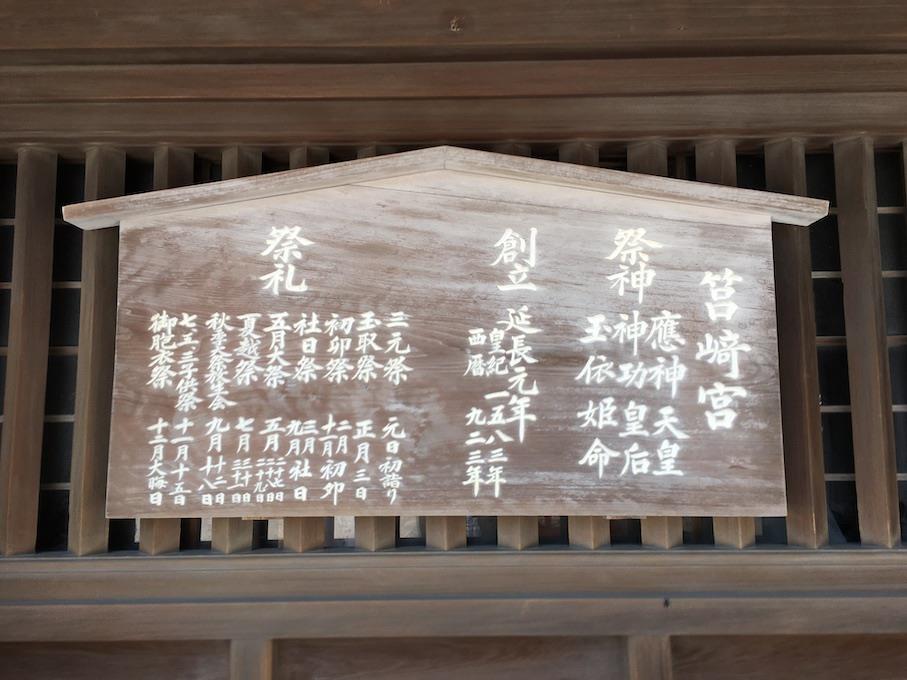 筥崎宮
祭神
應神天皇
神功皇后
玉依姫命
創立
延長元年
皇紀一五八三年
西暦九二三年
祭礼
三元祭 元日初詣り
玉取祭 正月三日
初卯祭 二月 十一月 初卯
社日祭 三月 九月 社日
五月大祭 五月 二十七日 二十八日 二十九日
夏越祭 七月 三十日 三十一日
九月 十二日 十八日
七五三子供祭 十一月十五日
御胞衣祭 十二月大晦日